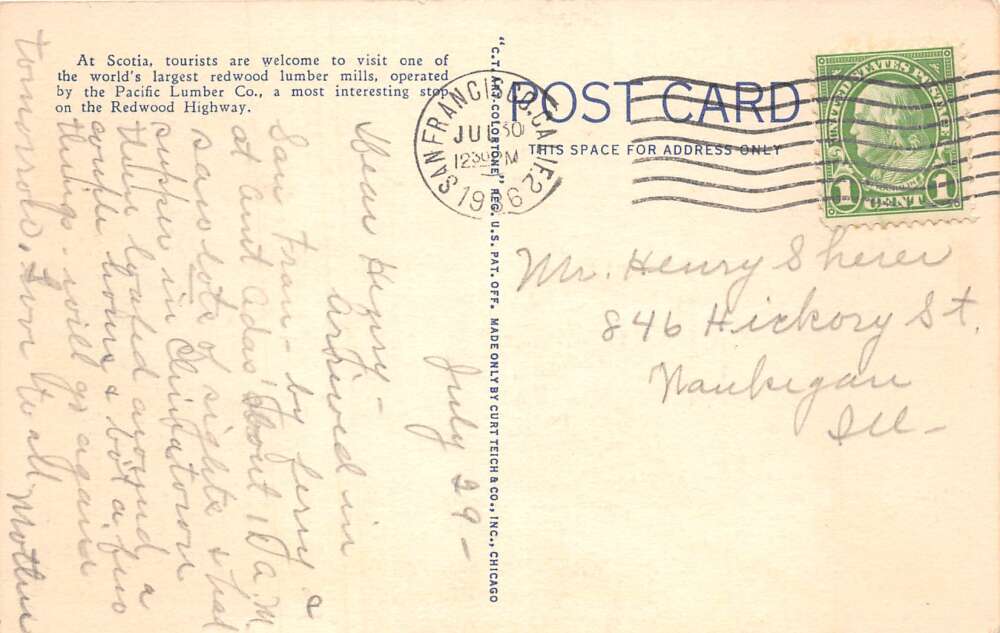 At Scotia, tourists are welcome to visit one of
the world's largest redwood lumber mills, operated
by the Pacific Lumber Co., a most interesting stop
on the Redwood Highway.
"C.T. ART-COLORTONE" REG. U.S. PAT. OFF. MADE ONLY BY CURT TEICH & CO., INC., CHICAGO
POST CARD
THIS SPACE FOR ADDRESS ONLY
SAN FRANCISCO, CALIF. 22
JUL 30
12 30 PM
1936
UNITED STATES POSTAGE
1 CENT 1
Mr. Henry Sherer
846 Hickory St.
Waukegan
Ill-
July 29-
Dear Henry -
Arrived in
San Fran- by ferry &
at Aunt Adas' about 10 A.M.
Saw lots of sights & had
supper in Chinatown
then looked around a
couple hours & bot a few
things. will go again
tomorrow. Love to all Mother